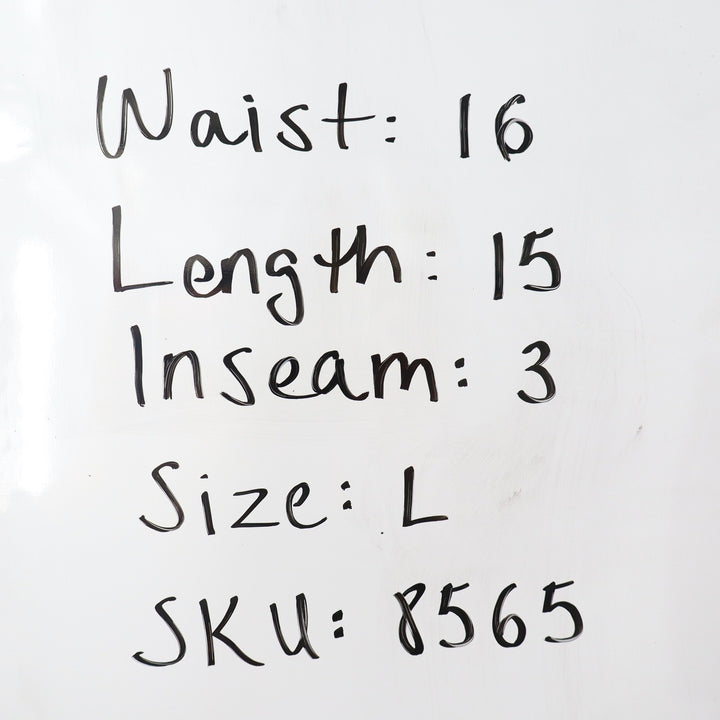 Waist: 16
Length: 15
Inseam: 3
Size: L
SKU: 8565